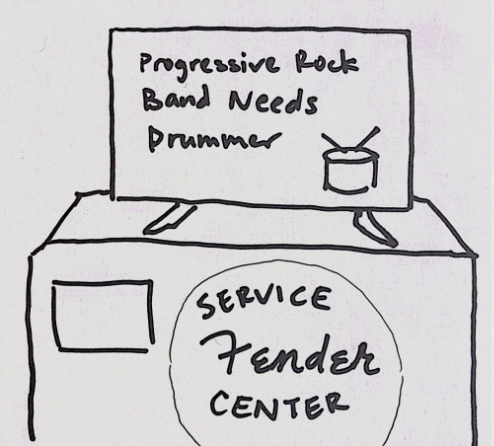 Progressive Rock
Band Needs
Drummer
SERVICE
Fender
CENTER